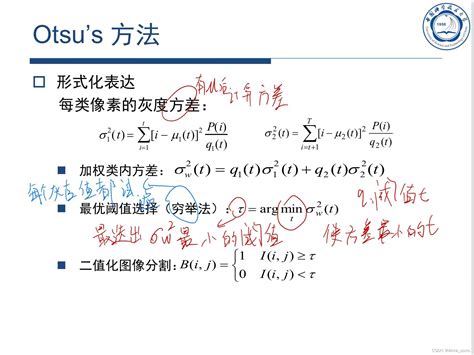 Otsu's 方法
1958
形式化表达
每类像素的灰度方差：
σ₁²(t) = ∑_{i=1}^{t} [i − μ₁(t)]² P(i)/q₁(t)
σ₂²(t) = ∑_{i=t+1}^{T} [i − μ₂(t)]² P(i)/q₂(t)
加权类内方差: σ_w²(t) = q₁(t)σ₁²(t) + q₂(t)σ₂²(t)
每个灰度值都
最优阈值选择（穷举法）: τ = arg min_t σ_w²(t)
阈值t
最选出 σw² 最小的阈值
使方差最小的t
二值化图像分割: B(i, j) = {1 I(i, j) ≥ τ
0 I(i, j) < τ